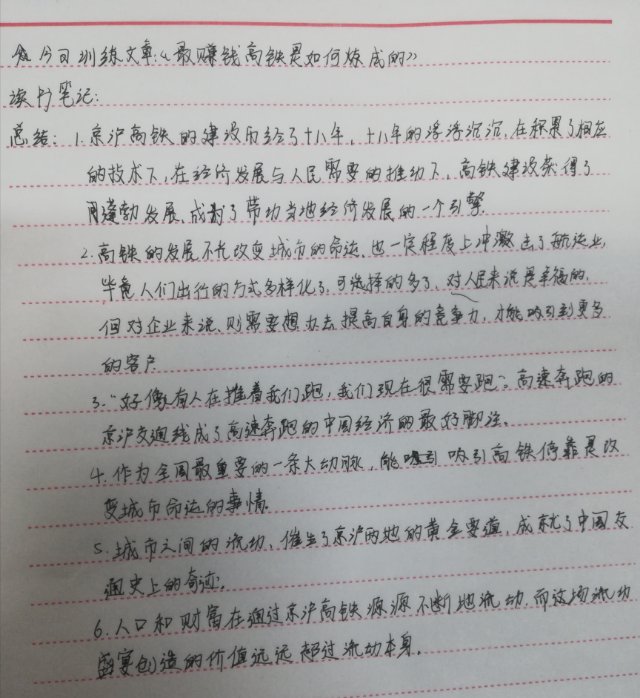 今日训练文章:《最赚钱高铁是如何炼成的》
读书笔记:
总结: 1.京沪高铁的建设历经了十八年,十八年的浮浮沉沉,在积累了相应
的技术下,在经济发展与人民需要的推动下,高铁建设获得了
蓬勃发展,成为了带动当地经济发展的一个引擎.
2.高铁的发展不光改变城市的命运,也一定程度上冲激击了航运业,
毕竟人们出行的方式多样化了,可选择的多了,对人民来说是幸福的,
但对企业来说,则需要想办法提高自身的竞争力,才能吸引到更多
的客户
3."好像有人在推着我们跑,我们现在很需要跑"。高速奔跑的
京沪交通线成了高速奔跑的中国经济的最好脚注。
4.作为全国最重要的一条大动脉,能吸引高铁停靠是改
变城市命运的事情.
5.城市之间的流动,催生了京沪两地的黄金要道,成就了中国交
通史上的奇迹.
6.人口和财富在通过京沪高铁源源不断地流动,而这场流动
盛宴创造的价值远远超过流动本身.